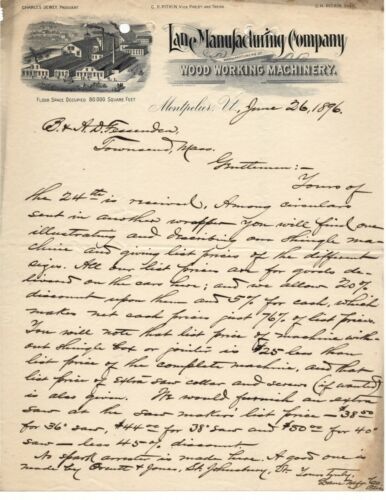 CHARLES DEWEY, PRESIDENT
C. H. PITKIN VICE PREST. AND TREAS.
Lane Manufacturing Company
WOOD WORKING MACHINERY.
FLOOR SPACE OCCUPIED 80,000 SQUARE FEET
Montpelier, Vt., June 26, 1896.
B & A. D. Fessenden,
Townsend, Mass.
Gentlemen:-
Yours of
the 24th is received. Among circulars
sent in another wrapper you will find one
illustrating and describing our shingle ma
chine and giving list prices of the different
sizes. All our list prices are for goods de
livered on the cars here; and we allow 20%
discount upon them and 5% for cash, which
makes net cash prices just 76% of list prices.
You will note that list price of machine with
out shingle box or jointer is $25 less than
list price of the complete machine, and that
list price of extra saw collar and screws (if wanted)
is also given. We would furnish an extra
saw at the saw makers list price - $38.50
for 36" saw, $44.00 for 38" saw and $50.00 for 40"
saw - less 45% discount.
No spark arrester is made here. A good one is
made by &
Jones, St. Johnsbury, Vt. Yours truly,
Lane Mfg. Co.